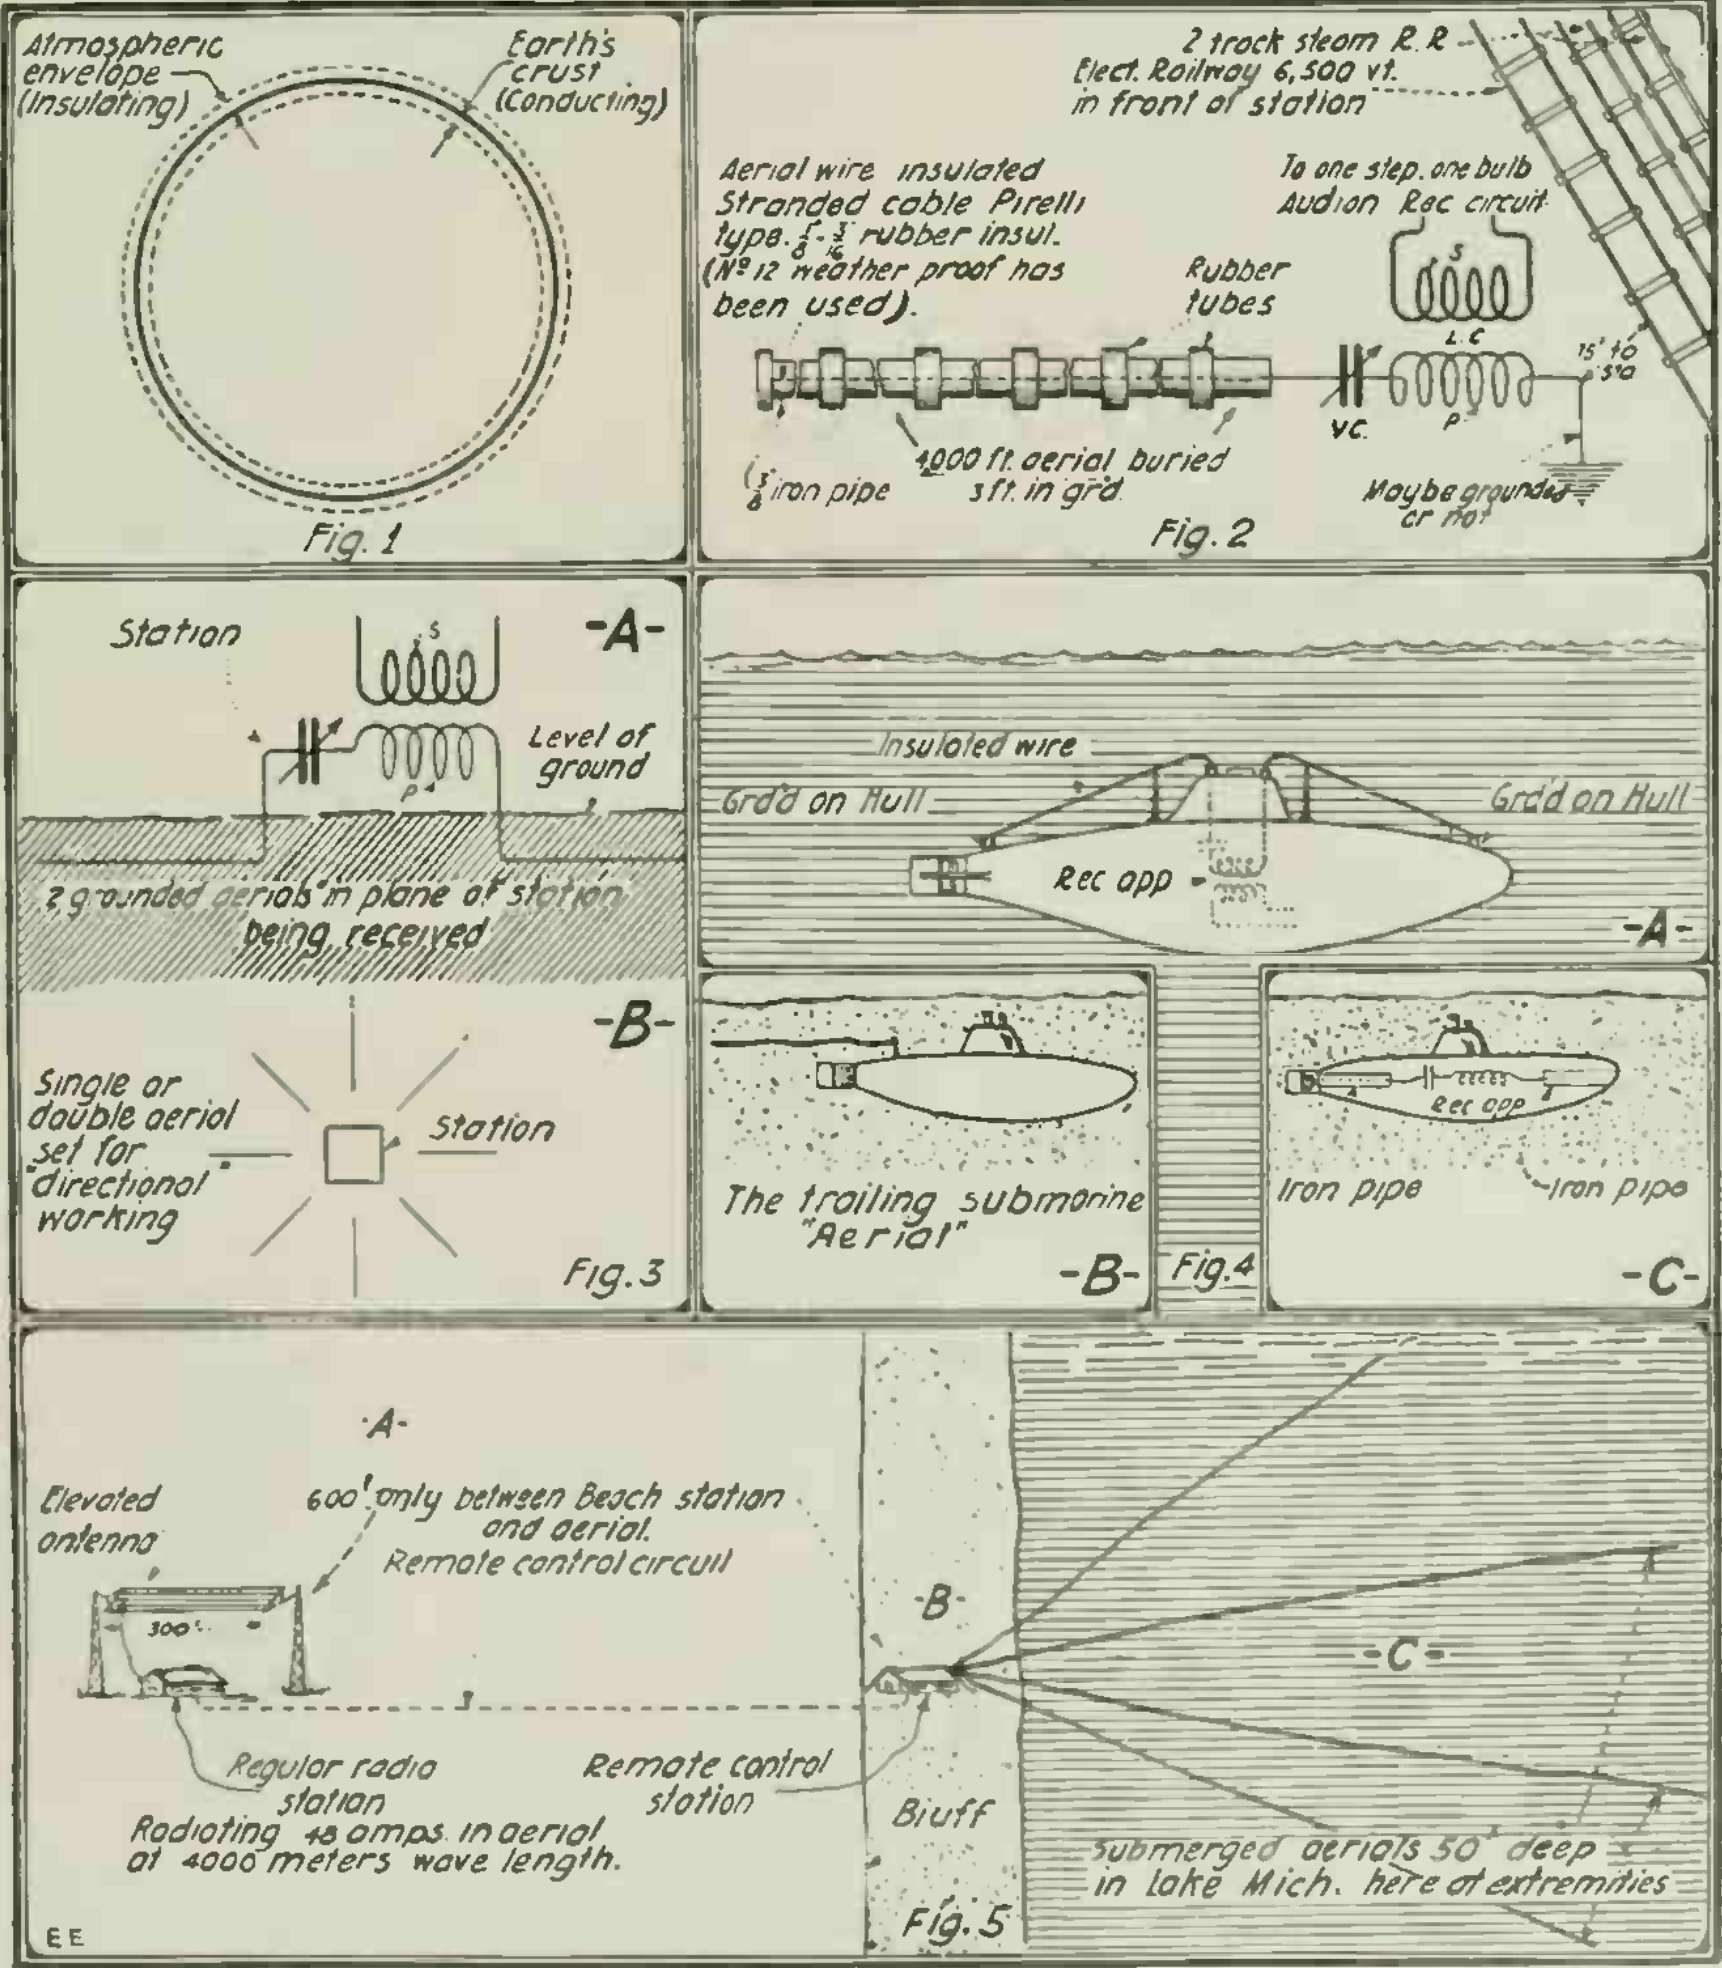 Atmospheric
envelope
(Insulating)
Earth's
crust
(Conducting)
Fig. 1
2 track steam R.R
Elect. Railway 6,500 vt.
in front of station
Aerial wire insulated
Stranded cable Pirelli
type. 5/8 - 3/16 rubber insul.
(Nº 12 weather proof has
been used).
Rubber
tubes
To one step. one bulb
Audion Rec circuit
S
L.C
P
V.C.
15' to
sta
iron pipe
4000 ft. aerial buried
3 ft. in gr'd.
Maybe grounded
or not
Fig. 2
Station
S
-A-
P
Level of
ground
2 grounded aerials in plane of station
being received
-B-
Single or
double aerial
set for
"directional"
working
Station
Fig. 3
Insulated wire
Grd'd on Hull
Grd'd on Hull
Rec app
-A-
The trailing submarine
"Aerial"
-B-
Fig. 4
Rec app
Iron pipe
Iron pipe
-C-
-A-
Elevated
antenna
600' only between Beach station
and aerial.
Remote control circuit
300'
-B-
-C-
Regular radio
station
Remote control
station
Radiating 48 amps. in aerial
at 4000 meters wave length.
Bluff
Submerged aerials 50' deep
in Lake Mich. here at extremities
Fig. 5
E E